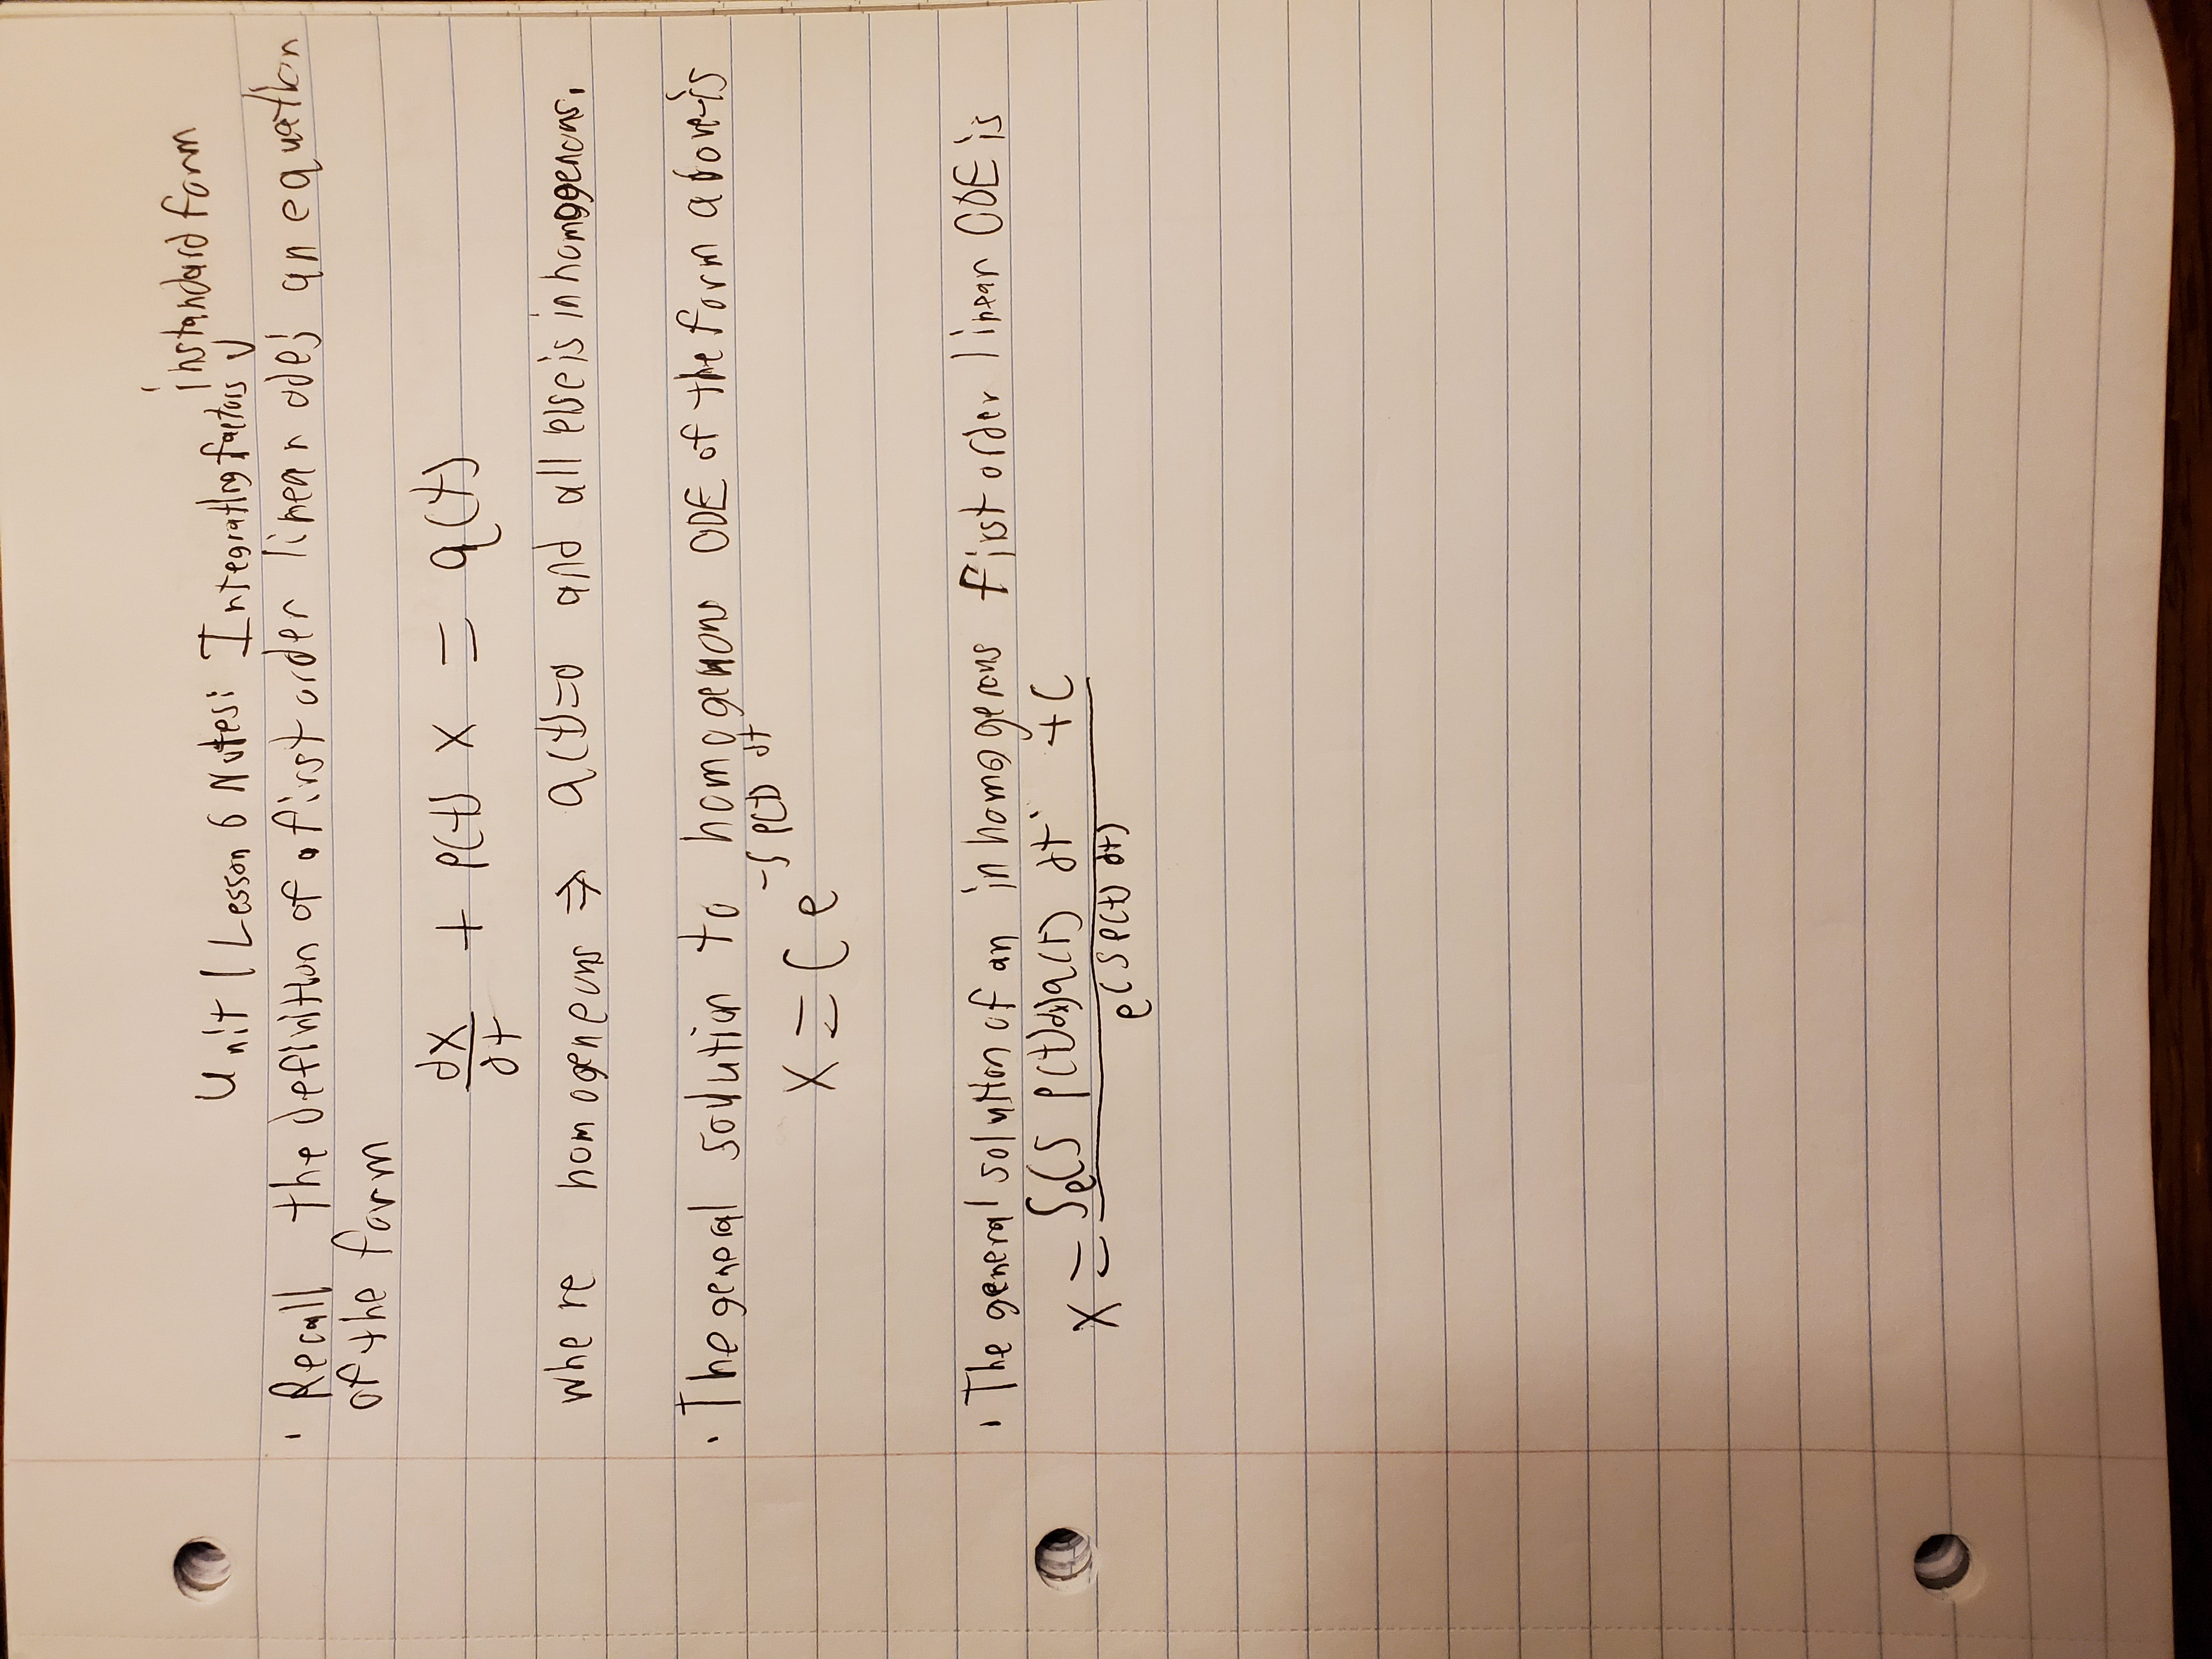 in standard form
Unit 1 Lesson 6 Notes: Integrating factors ↓
· Recall the definition of a first order linear ode; an equation
of the form
dx/dt + p(t) x = q(t)
where homogeneous ⇒ q(t)=0 and all else is inhomogenous.
· The general solution to homogenous ODE of the form above is
x = C e^(-∫ p(t) dt)
· The general solution of an inhomogenous first order linear ODE is
x = (∫e^(∫ p(t)dx) q(t) dt + C) / e^(∫ p(t) dt)